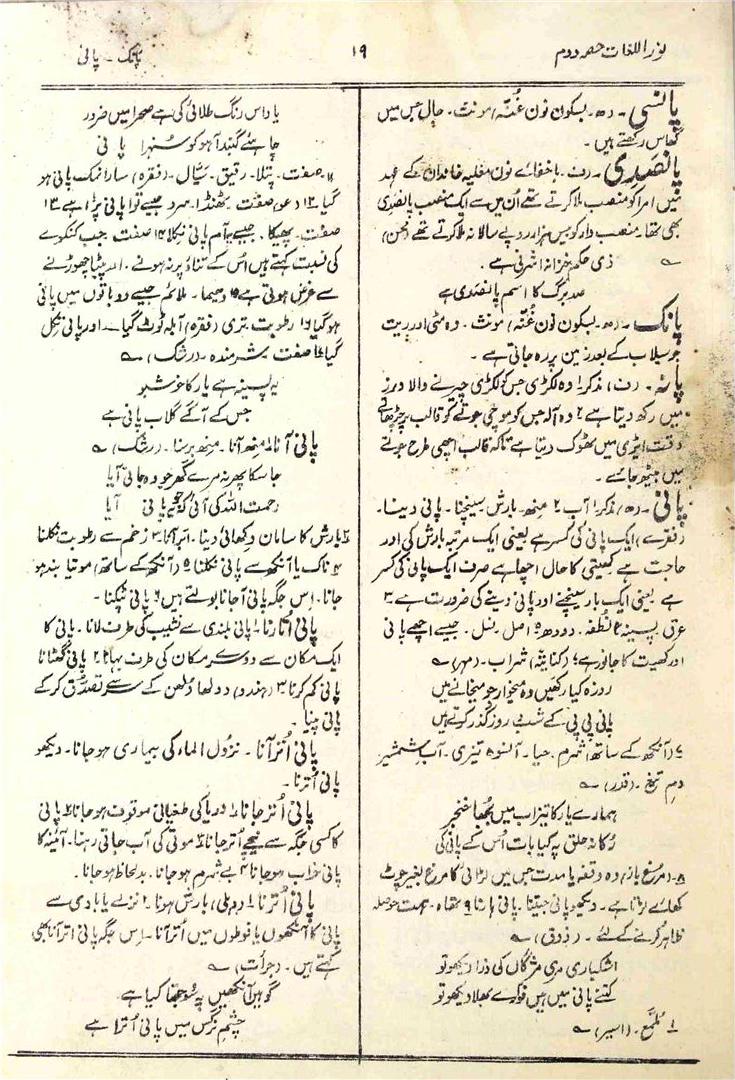 نور اللغات حصہ دوم
۱۹
پانک - پانی
پانسی ۔ (ھ ۔ بسکون نون غُنّہ) مونث ۔ جال جس میں
گھاس رکھتے ہیں ۔
پانصدی ۔ (ف ۔ باخفائے نون مغلیہ خاندان کے عہد
میں امرا کو منصب ملا کرتے تھے اُن میں سے ایک منصب پانصدی
بھی تھا ۔ منصب دار کو بیس ہزار روپے سالانہ ملا کرتے تھے
ذی حکم خزانہ اشرفی ہے ۔
صد برگ کا اسم پانصدی ہے
پانک ۔ (ھ ۔ بسکون نون غُنّہ) مونث ۔ وہ مٹی اور ریت
جو سیلاب کے بعد زمین پر رہ جاتی ہے ۔
پانہ ۔ (ف) مذکر ۱ وہ لکڑی جس کو لکڑی چیرنے والا درز
میں رکھ دیتا ہے ۲ وہ آلہ جس کو موچی جوتے کو قالب پر چڑھاتے
وقت ایڑی میں ٹھوک دیتا ہے تاکہ قالب اچھی طرح جوتے
میں بیٹھ جائے ۔
پانی ۔ (ھ) مذکر ۱ آب ۲ مینھ ۔ بارش ۔ سینچنا ۔ پانی دینا ۔
(فقرے) ایک پانی کی کسر ہے یعنی ایک مرتبہ بارش کی اور
حاجت ہے کھیتی کا حال اچھا ہے صرف ایک پانی کی کسر
ہے یعنی ایک بار سینچنے اور پانی دینے کی ضرورت ہے ۳
عرق ۔ پسینہ ۴ نُطفہ ۔ دودھ ۵ اصل ۔ نسل ۔ جیسے اچھے پانی
اور کھیت کا جانور ہے ۶ (کنایتہً) شراب ۔ (مہر) ؎
روزہ کیا رکھیں وہ میخوار جو میخانے میں
پانی پی پی کے شب و روز گذر کرتے ہیں
۷ (آنکھ کے ساتھ) شرم ۔ حیا ۔ آنسو ۔ تیزی ۔ آب شمشیر
دم تیغ ۔ (قدر) ؎
ہمارے یار کا تیزاب میں بجھا خنجر
رُکا نہ حلق پہ کیا بات اُس کے پانی کی
۸ ۔ (مرغ باز) وہ وقفہ یا مدت جس میں لڑائی کا مرغ بغیر چوٹ
کھائے لڑتا ہے ۔ دیکھو پانی جیتنا ۔ پانی ہارنا ۹ ہمت حوصلہ
ظاہر کرنے کے لئے ۔ (ذوق) ؎
اشکباری مری مژگاں کی ذرا دیکھو تو
کتنے پانی میں ہیں فوارے بھلا دیکھو تو
۱۰ مُلمّع ۔ (اسیر) ؎
یا داس رنگ طلائی کی ہے صحرا میں ضرور
چاہئے گنبد آہو کو سُنہرا پانی
۱۱ ۔ صفت ۔ پتلا ۔ رقیق ۔ سیّال ۔ (فقرہ) سارا نمک پانی ہو
گیا ۱۲ (عو) صفت ۔ ٹھنڈا ۔ سرد جیسے توا پانی پڑا ہے ۱۳
صفت ۔ پھیکا ۔ جیسے یہ آم پانی نکلا ۱۴ صفت ۔ جب کنکوے
کی نسبت کہتے ہیں اُس کے تناؤ پر نہ ہونے ۔ اور پیٹا چھوڑنے
سے غرض ہوتی ہے ۱۵ دھیما ۔ ملائم جیسے دو باتوں میں پانی
ہو گیا ۱۶ رطوبت ۔ تری (فقرہ) آبلہ ٹوٹ گیا ۔ اور پانی نکل
گیا ۱۷ صفت شرمندہ ۔ (رشک) ؎
یہ پسینہ ہے یار کا خوشبو
جس کے آگے گلاب پانی ہے
پانی آنا ۱ مینھ آنا ۔ مینھ برسنا ۔ (رشک) ؎
جا سکا پھر نہ مرے گھر جو وہ جانی آیا
رحمت اللہ کی آئی کہ یہ پانی آیا
۲ بارش کا سامان دکھائی دینا ۔ ابر آنا ۳ زخم سے رطوبت نکلنا
۴ ناک یا آنکھ سے پانی نکلنا ۵ (آنکھ کے ساتھ) موتیا بند ہو
جانا ۔ اِس جگہ پانی آجانا بولتے ہیں ۶ پانی ٹپکنا ۔
پانی اُتارنا ۱ پانی بلندی سے نشیب کی طرف لانا ۔ پانی کا
ایک مکان سے دوسرے مکان کی طرف بہانا ۲ پانی گھٹانا
پانی کم کرنا ۳ (ہندو) دولھا دُلھن کے سر سے تصدّق کر کے
پانی پینا ۔
پانی اُتر آنا ۔ نزول الماء کی بیماری ہو جانا ۔ دیکھو
پانی اُترنا ۔
پانی اُتر جانا ۱ دریا کی طغیانی موقوف ہو جانا ۲ پانی
کا کسی جگہ سے نیچے اُتر جانا ۳ موتی کی آب جاتی رہنا ۔ آئینہ کا
پانی خراب ہو جانا ۴ بے شرم ہو جانا ۔ بدلحاظ ہو جانا ۔
پانی اُترنا ۱ (دہلی) بارش ہونا ۲ نزلے یا بادی سے
پانی کا آنکھوں یا فوطوں میں اُتر آنا ۔ اِس جگہ پانی اُتر آنا بھی
کہتے ہیں ۔ (جرأت) ؎
گو ہیں آنکھیں پہ سُوجھتا کیا ہے
چشم نرگس میں پانی اُترا ہے